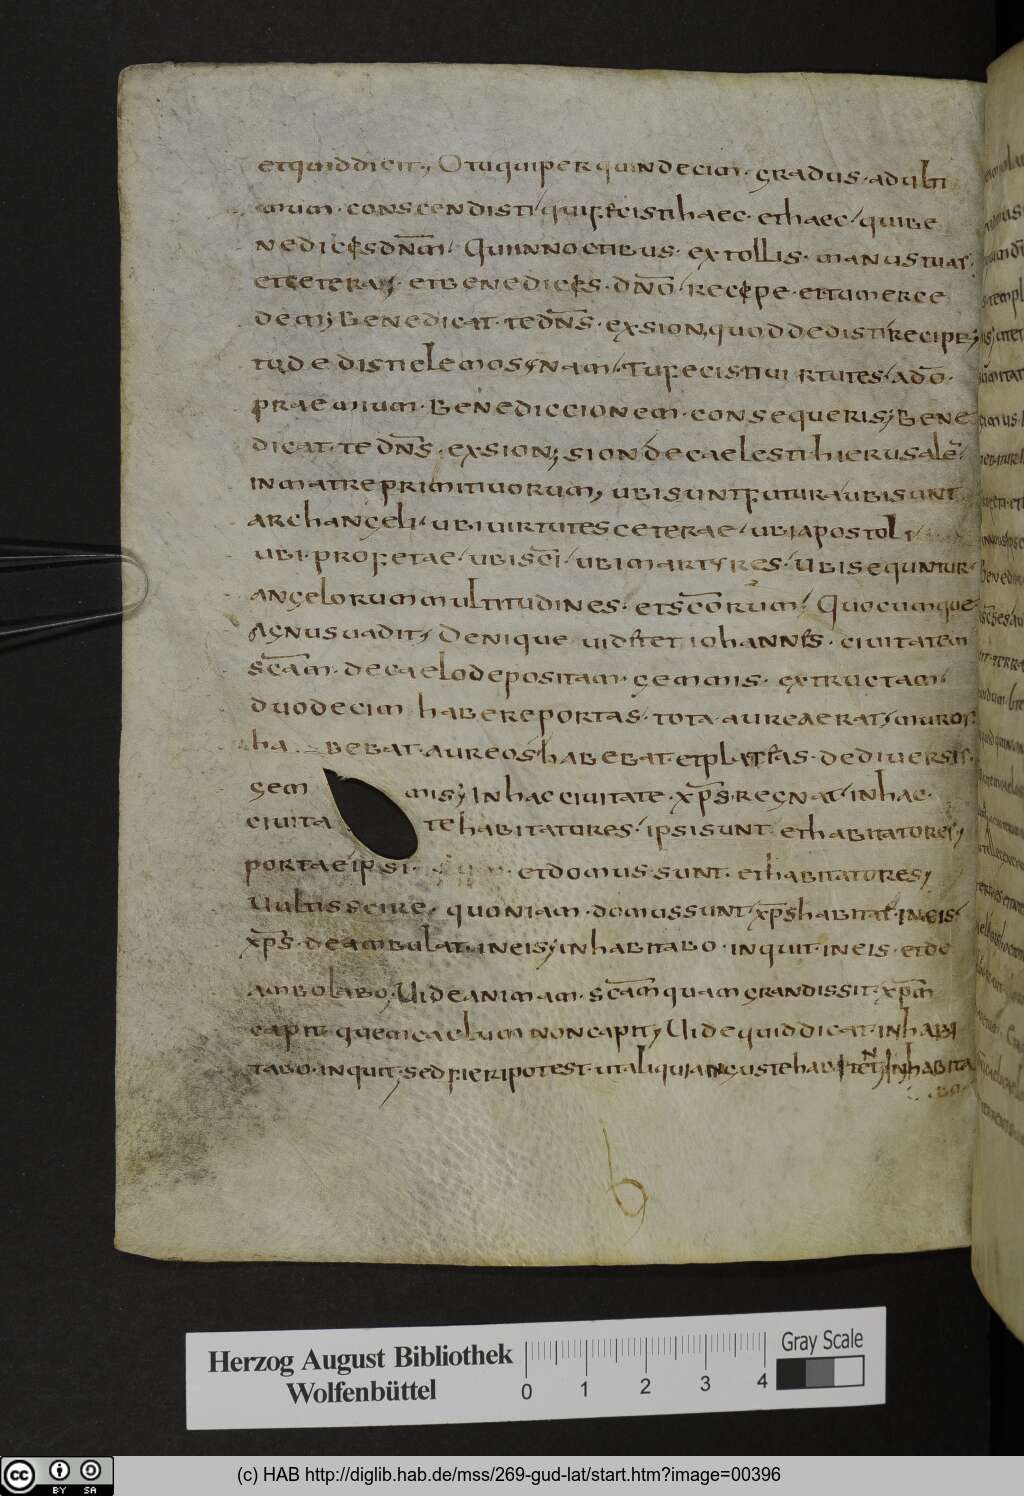 etquiddicit; Otuquiperquindecim· gradus·adulti
mum·conscendisti quifecistihaec· ethaec quibe
nedicesdn̅m· Quiinnoctibus· extollis· manustuas·
etcetera; etbenedices· dn̅o recepe· ettumerce
dem; Benedicat·tedn̅s· exsion, quoddedisti recipe;
tudedistielemosynam· Tufecistiuirtutes· ado̅·
praemium· Benediccionem·consequeris; Bene
dicat·tedn̅s·exsion; siondecaelesti·hierusale̅·
inmatreprimitiuorum, ubisuntfutura ubisunt
archangeli· ubiuirtutesceterae· ubiapostoli
ubi·profetae· ubisc̅i· ubimartyres· Ubisequntur
angelorummultitudines· etsc̅orum· Quocumque
Agnusuadit; Denique uidetet iohannes· ciuitatem
sc̅am·decaelodepositam· gemmis· extructam·
duodecim habereportas· tota·aureaerat; muros
ha bebat·aureos habebat·etplateas·dediuersis·
gem mis; Inhacciuitate·xp̅s·regnat inhac·
ciuita tehabitatores· ipsisunt ethabitatores;
portaeipsi· etdomus·sunt· ethabitatores;
Uultisscire, quoniam·domussunt xp̅shabitat·ineis·
xp̅s·deambulat·ineis; inhabitabo·inquit·ineis·etde
ambolabo; Uideanimam·sc̅amquamgrandissit·xp̅m
capit·quemcaelumnoncapit; Uidequiddicat·inhabi
tabo·inquit·sedfieripotest·utaliquiangustehabitent, Inhabita
bo·
b
Herzog August Bibliothek
Wolfenbüttel
0 1 2 3 4
Gray Scale
(c) HAB http://diglib.hab.de/mss/269-gud-lat/start.htm?image=00396
cc BY SA